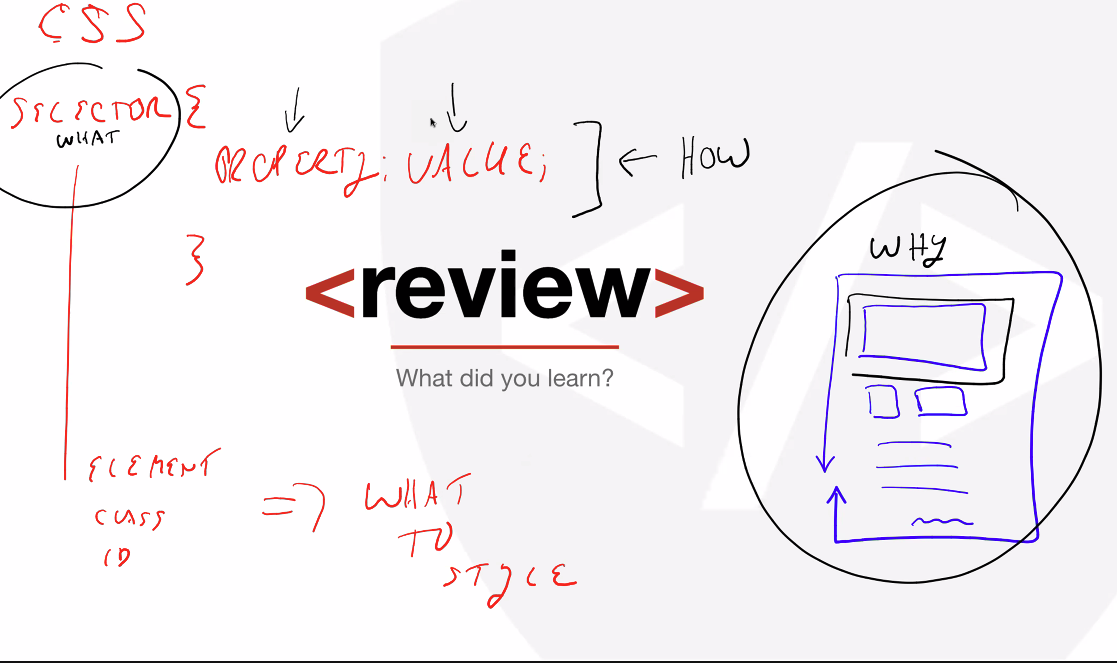 CSS
SELECTOR {
WHAT
PROPERTY: VALUE;
] ← HOW
}
WHY
<review>
What did you learn?
ELEMENT
CLASS
ID
=> WHAT
TO
STYLE